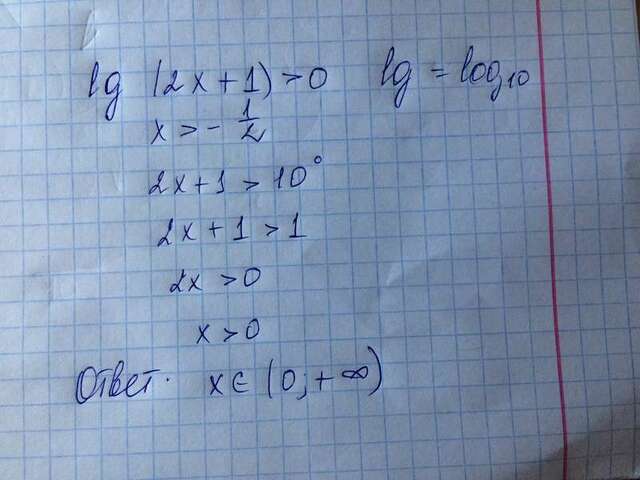 lg (2x+1)>0 lg = log₁₀
x > - 1/2
2x+1 > 10⁰
2x+1 > 1
2x > 0
x > 0
Ответ. x ∈ (0;+∞)